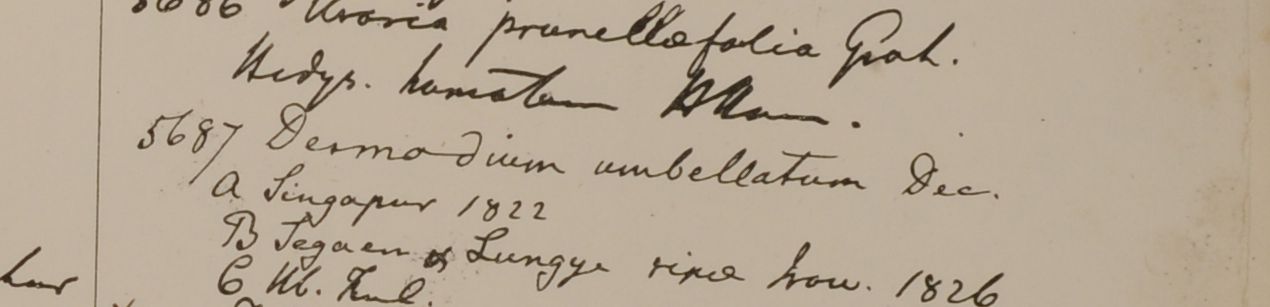 5686 Uraria prunellæfolia Grah.
Hedys. hamatum
5687 Desmodium umbellatum Dec.
A Singapur 1822
B Segaen & Lungye ripæ Irow. 1826
C Hb.